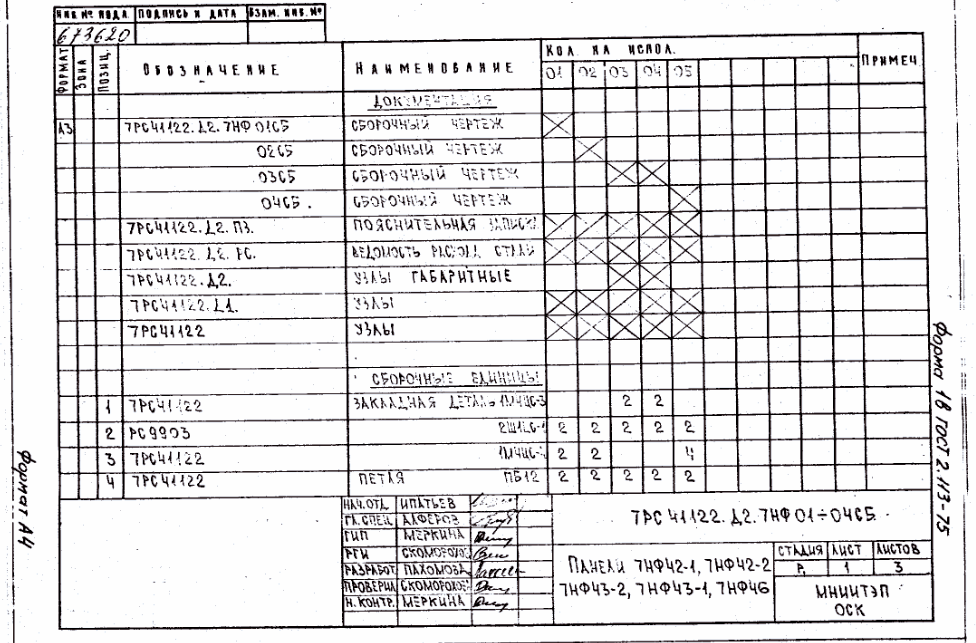 ИНВ.№ ПОДЛ. ПОДПИСЬ И ДАТА ВЗАМ. ИНВ.№
673620
ФОРМАТ ЗОНА ПОЗИЦ. ОБОЗНАЧЕНИЕ НАИМЕНОВАНИЕ КОЛ. НА ИСПОЛ. ПРИМЕЧ
01 02 03 04 05
ДОКУМЕНТАЦИЯ
А3 7РС41122.Д2.7НФ01СБ СБОРОЧНЫЙ ЧЕРТЕЖ
02СБ СБОРОЧНЫЙ ЧЕРТЕЖ
03СБ СБОРОЧНЫЙ ЧЕРТЕЖ
04СБ. СБОРОЧНЫЙ ЧЕРТЕЖ
7РС41122.Д2.ПЗ. ПОЯСНИТЕЛЬНАЯ ЗАПИСКА
7РС41122.Д2.РС. ВЕДОМОСТЬ РАСХОДА СТАЛИ
7РС41122.Д2. УЗЛЫ ГАБАРИТНЫЕ
7РС41122.Д1. УЗЛЫ
7РС41122 УЗЛЫ
СБОРОЧНЫЕ ЕДИНИЦЫ
1 7РС41122 ЗАКЛАДНАЯ ДЕТАЛЬ 2 2
2 РС9903 2 2 2 2 2
3 7РС41122 2 2 4
4 7РС41122 ПЕТЛЯ ПБ12 2 2 2 2 2
НАЧ.ОТД. ИПАТЬЕВ
ГЛ.СПЕЦ. АЛФЕРОВ
ГИП МЕРКИНА
РГИ СКОМОРОХОВ
РАЗРАБОТ. ПАХОМОВА
ПРОВЕРИЛ СКОМОРОХОВ
Н.КОНТР. МЕРКИНА
7РС 41122.Д2.7НФ01÷04СБ.
ПАНЕЛИ 7НФ42-1, 7НФ42-2
7НФ43-2, 7НФ43-1, 7НФ46
СТАДИЯ ЛИСТ ЛИСТОВ
Р. 1 3
МНИИТЭП
ОСК
Форма 18 ГОСТ 2.113-75
Формат А4